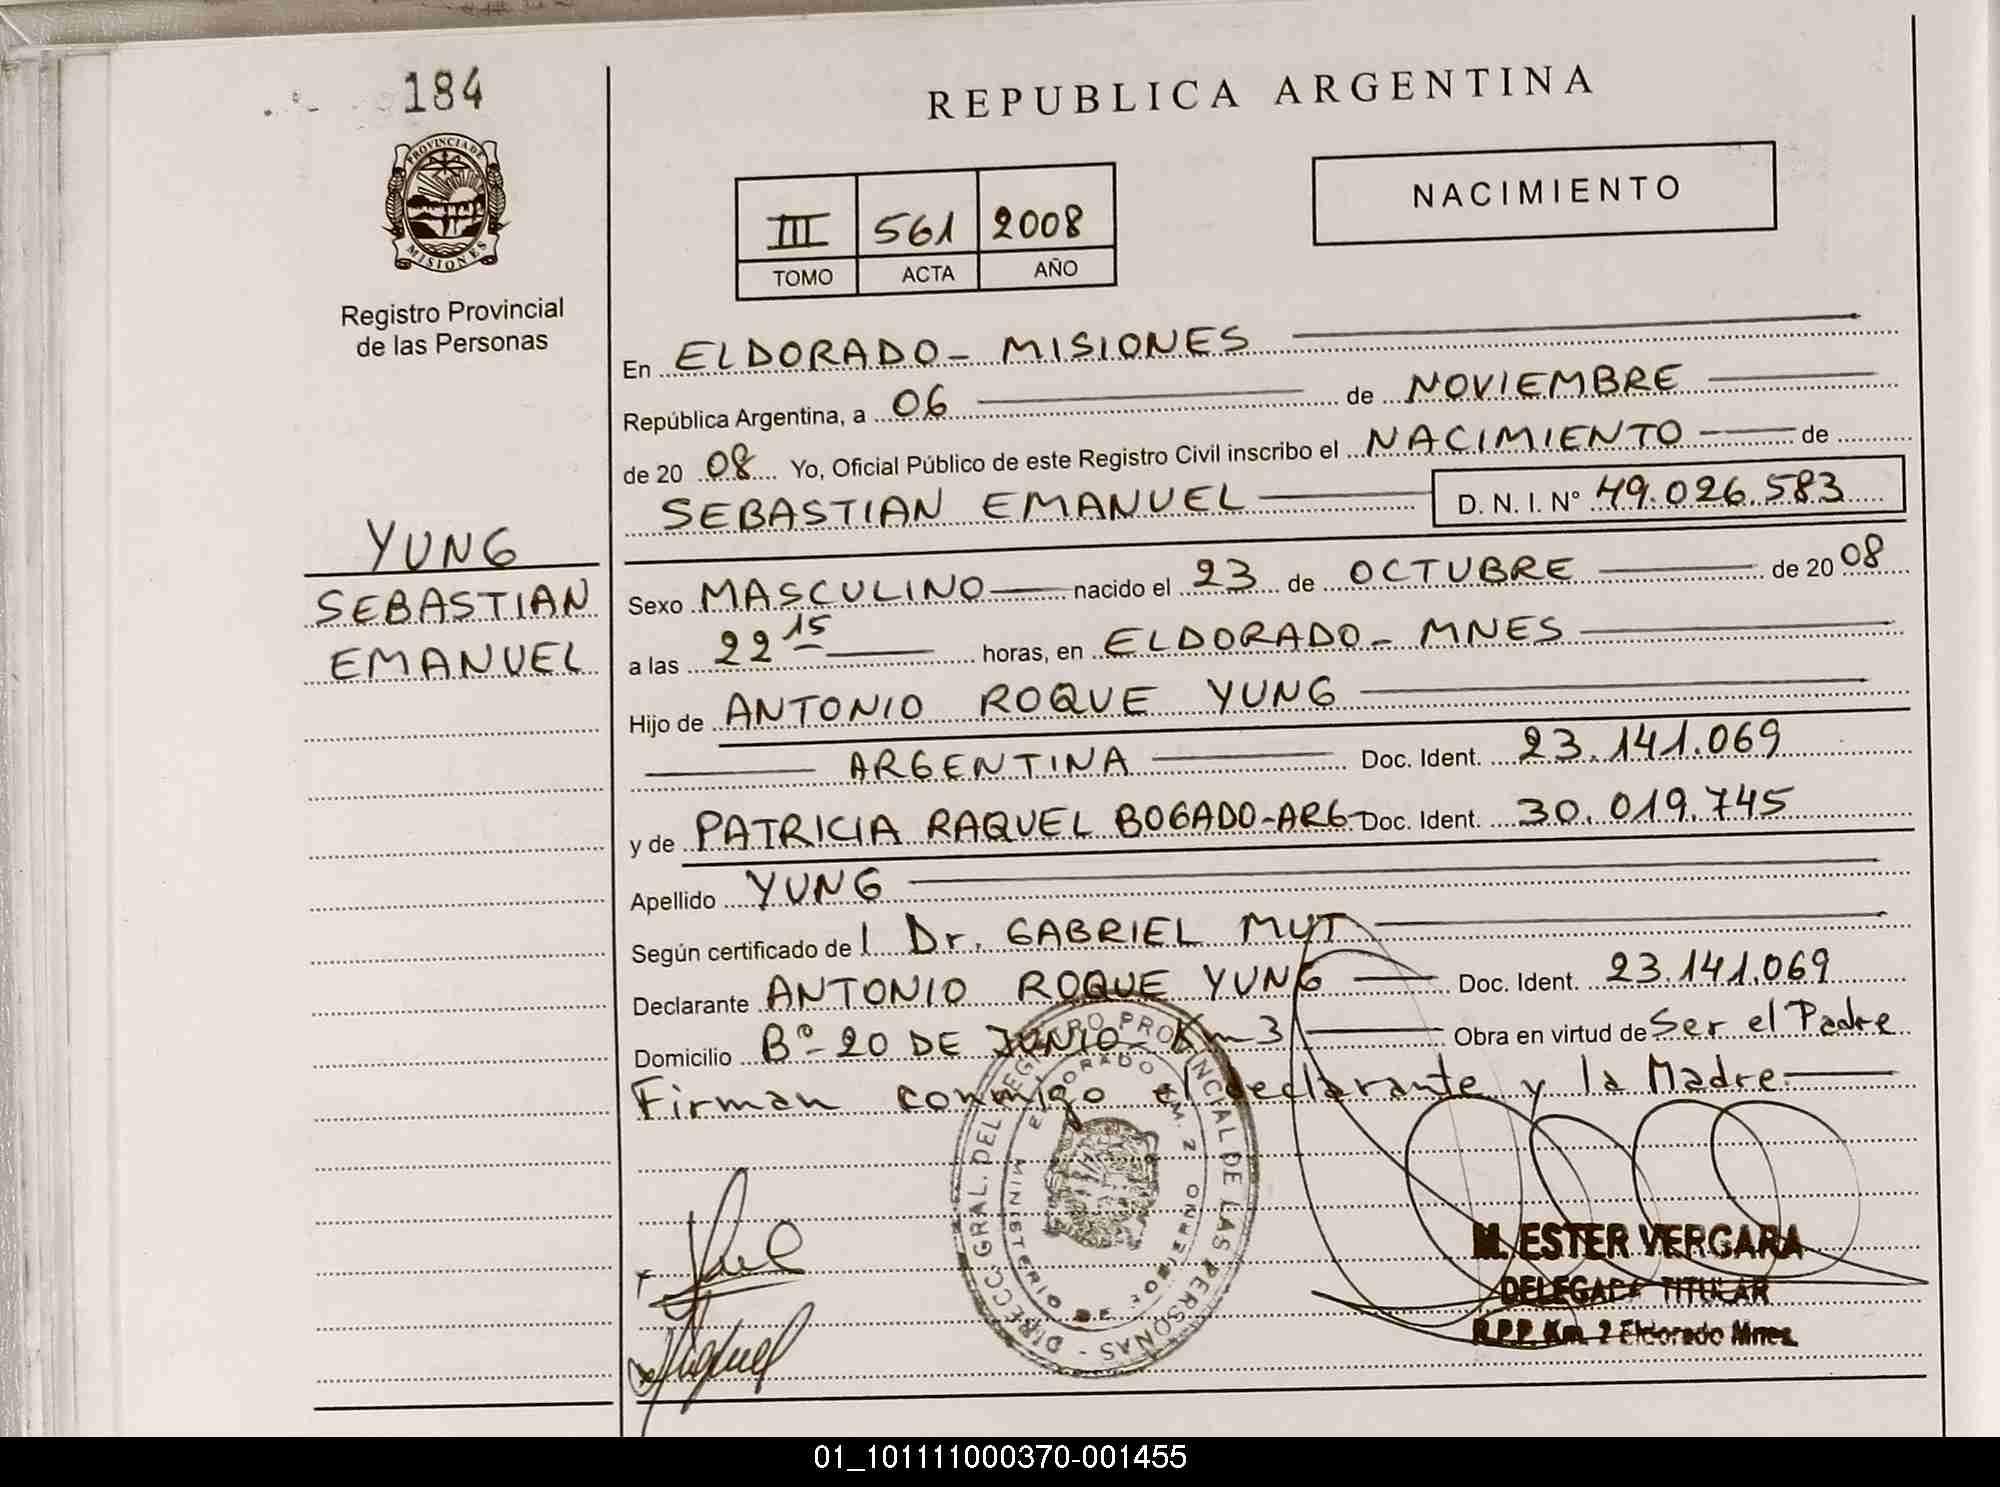 184
PROVINCIA DE
MISIONES
Registro Provincial
de las Personas
YUNG
SEBASTIAN
EMANUEL
REPUBLICA ARGENTINA
III 561 2008
TOMO ACTA AÑO
NACIMIENTO
En ELDORADO - MISIONES
República Argentina, a 06 de NOVIEMBRE
de 20 08 Yo, Oficial Público de este Registro Civil inscribo el NACIMIENTO de
SEBASTIAN EMANUEL D. N. I. N° 49.026.583
Sexo MASCULINO nacido el 23 de OCTUBRE de 20 08
a las 22 15 horas, en ELDORADO - MNES
Hijo de ANTONIO ROQUE YUNG
ARGENTINA Doc. Ident. 23.141.069
y de PATRICIA RAQUEL BOGADO-ARG- Doc. Ident. 30.019.745
Apellido YUNG
Según certificado de l Dr. GABRIEL MUT
Declarante ANTONIO ROQUE YUNG Doc. Ident. 23.141.069
Domicilio Bº-20 DE JUNIO- Km 3 Obra en virtud de Ser el Padre
Firman conmigo el declarante y la Madre
DIRECC. GRAL. DEL REGISTRO PROVINCIAL DE LAS PERSONAS -
ELDORADO KM. 2
MINISTERIO DE GOBIERNO
M. ESTER VERGARA
DELEGADA TITULAR
R.P.P. Km. 2 Eldorado Mnes.
01_101111000370-001455